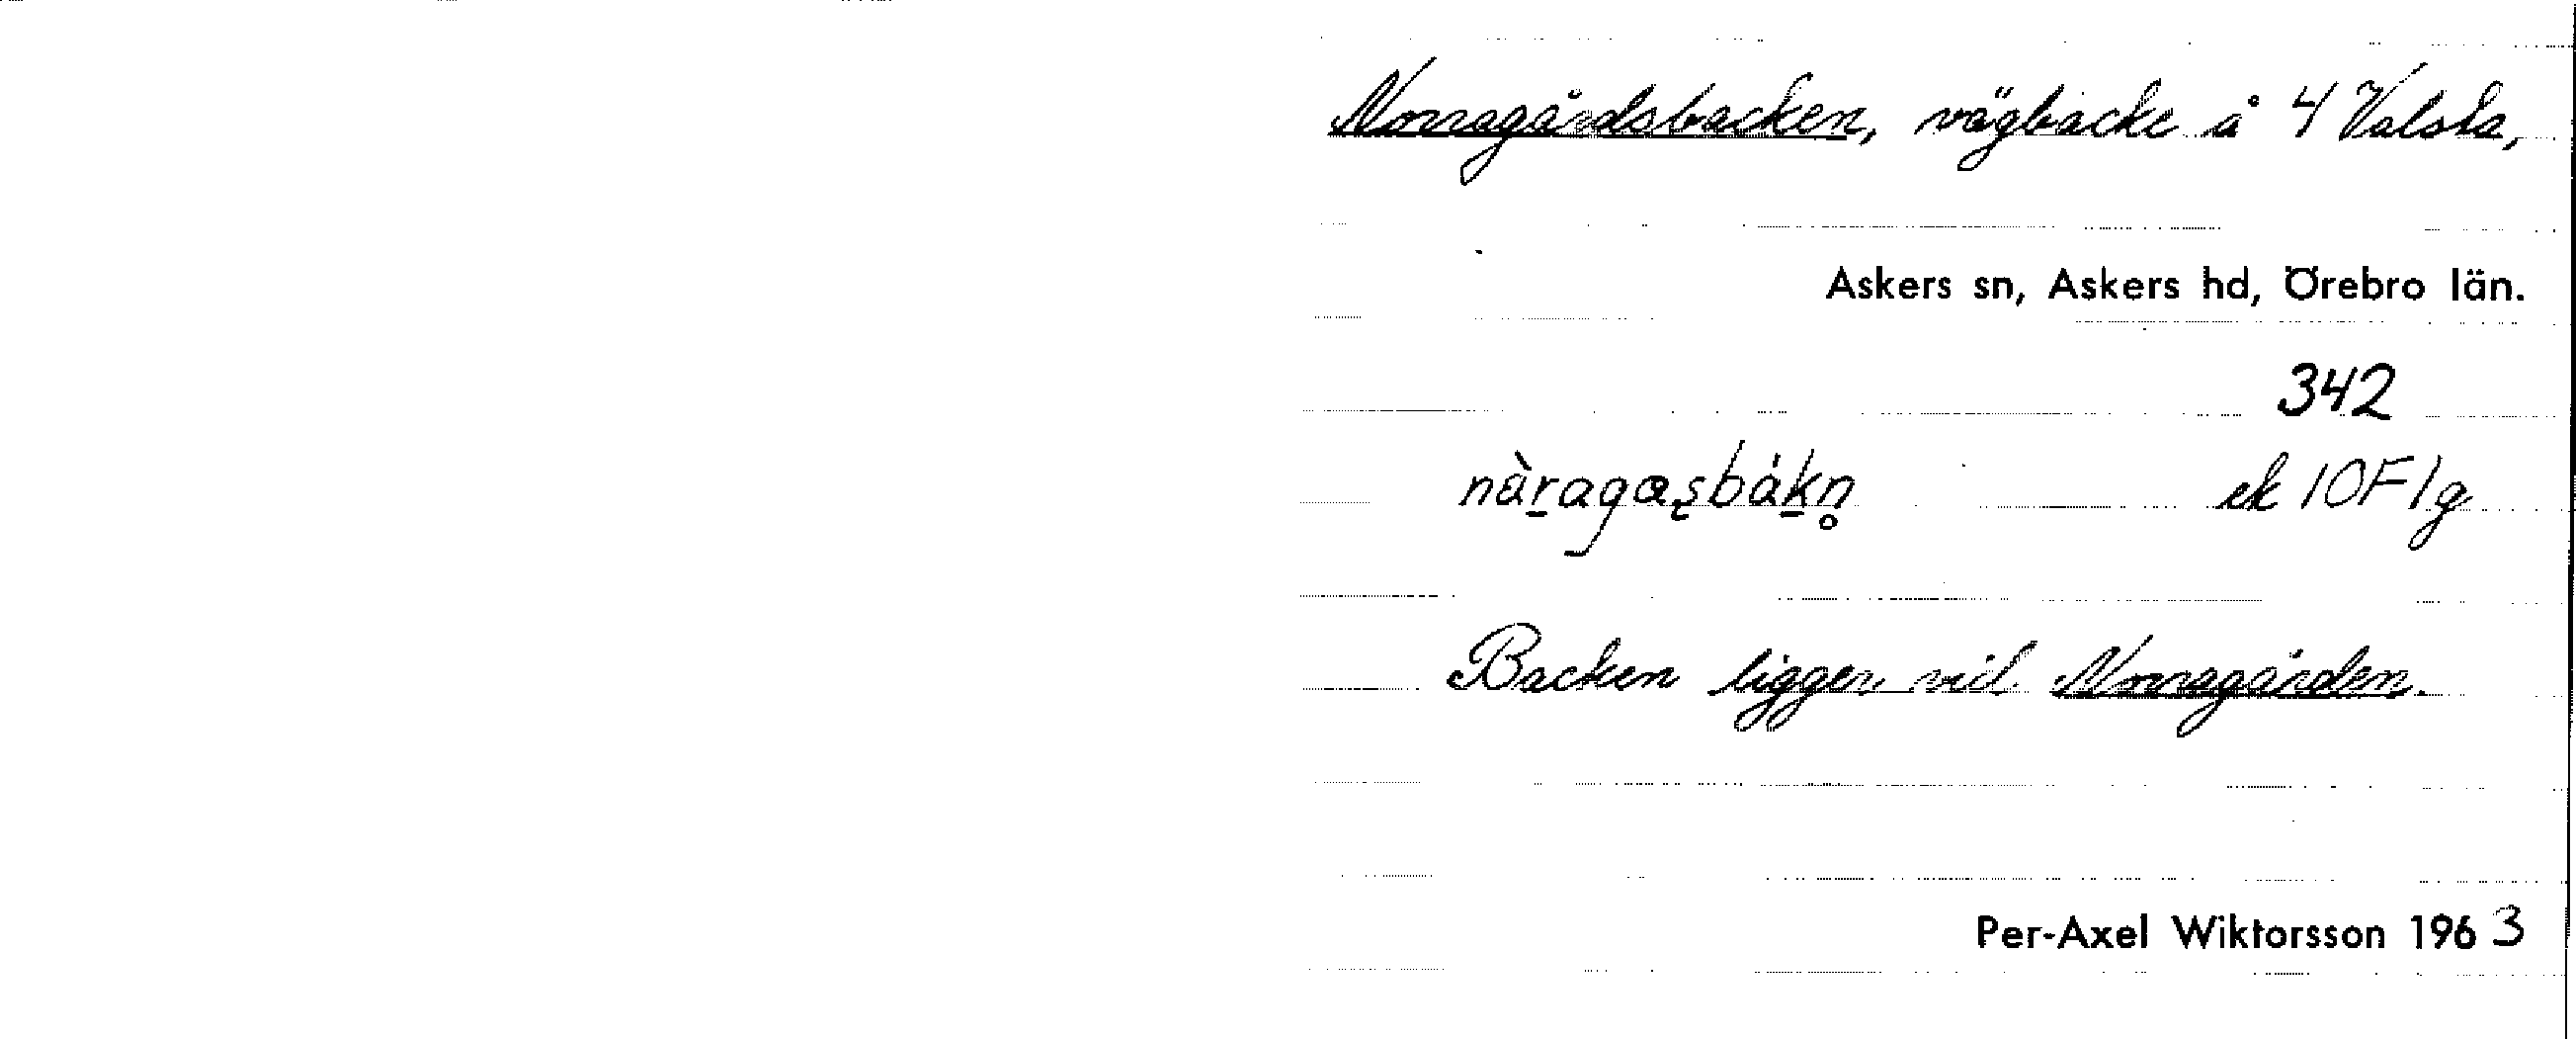 Norragårdsbacken, vägbacke å 4 Valsta,
Askers sn, Askers hd, Örebro län.
342
nàr̲agaʂbák̲n̥ ek 10F1g
Backen ligger vid Norragården.
Per-Axel Wiktorsson 1963